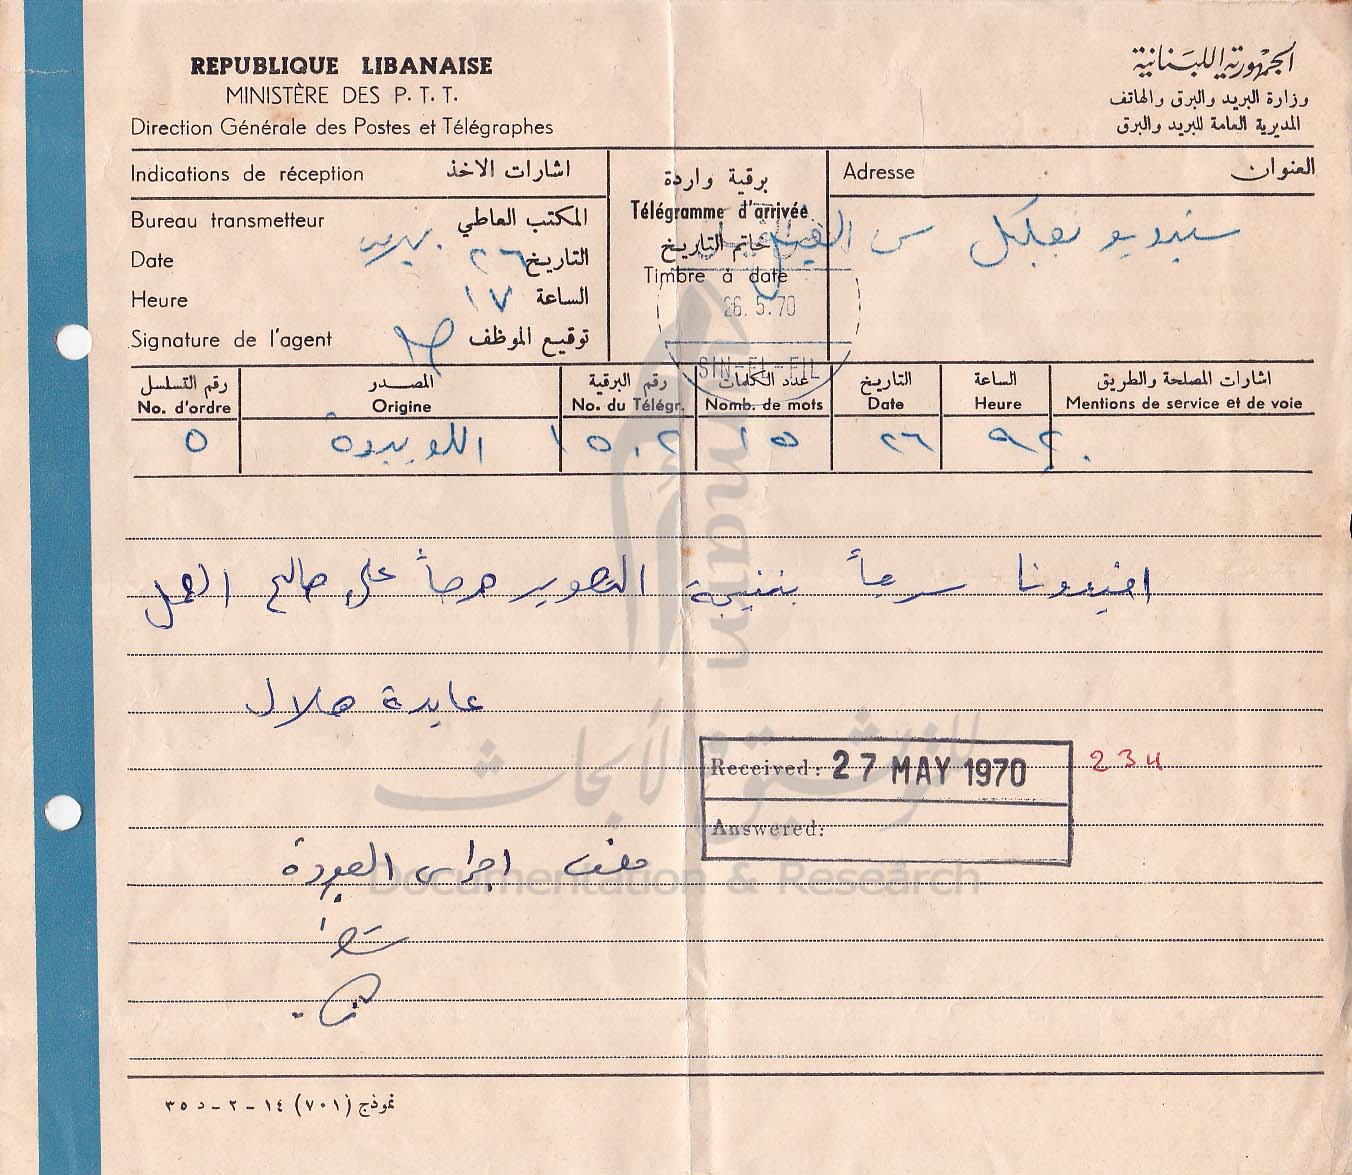 REPUBLIQUE LIBANAISE
MINISTÈRE DES P. T. T.
Direction Générale des Postes et Télégraphes
الجمهورية اللبنانية
وزارة البريد والبرق والهاتف
المديرية العامة للبريد والبرق
Indications de réception اشارات الاخذ
Bureau transmetteur المكتب العاطي
بيروت
Date ٢٦ التاريخ
Heure ١٧ الساعة
Signature de l'agent توقيع الموظف
برقية واردة
Télégramme d'arrivée
خاتم التاريخ
Timbre à date
26. 5. 70
SIN-EL-FIL
Adresse العنوان
ستيديو بعلبك سن الفيل
رقم التسلسل المصدر رقم البرقية عدد الكلمات التاريخ الساعة اشارات المصلحة والطريق
No. d'ordre Origine No. du Télégr. Nomb. de mots Date Heure Mentions de service et de voie
٥ اللويبدة ١٥٠٢ ١٥ ٢٦ ٩٤٠
افيدونا سريعاً بنتيجة التصوير حرصاً على صالح العمل
عايدة هلال
Received: 27 MAY 1970
234
Answered:
اجراس العودة
نموذج (٧٠١) ١٤ - ٢ - د ٣٥
Umam
للتوثيق والأبحاث
Documentation & Research